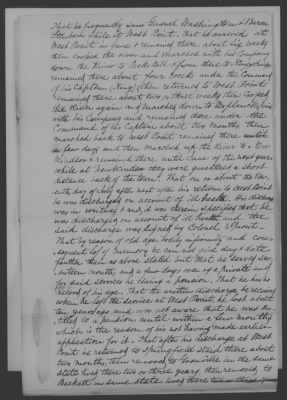 That he frequently saw General Washington & Baron
Steuben while at West Point. That he arrived at
West Point in June & remained there about six weeks
then crossed the River and marched with his Company
down the River to Peekskill & from there to Kingsbridge
remained there about four weeks under the Command
of his Captain (King) then returned to West Point
remained there about two or three weeks then crossed
the River again and marched down to
with his Company and remained there under the
Command of his Captain about two months then
marched back to West Point remained there until
a few days and then marched up the River to New
Windsor & remained there until June of the next year
while at New Windsor they were quartered a short
distance back of the Town. That on or about the
day of July after next after his return to West Point
he was discharged on account of ill health. His discharge
was in writing & and, it was therein specified that he
was discharged on account of ill health and the
said discharge was signed by Colonel Sprout.
That by reason of old age, bodily infirmity and con-
sequent loss of memory he can not give day & date
further than as above stated but that he served sev-
enteen months and a few days over as a private and
for said service he claims a pension. That he has no
record of his age. That the written discharge he received
when he left the service at West Point, he lost about
ten years ago and was not aware that he was en-
titled to a pension until within a few months
which is the reason of his not having made earlier
application for it. That after his discharge at West
Point he returned to Springfield staid there about
two months, then removed to Granville in the same
State lived there two or three years, then removed to
Becket in same state lived there